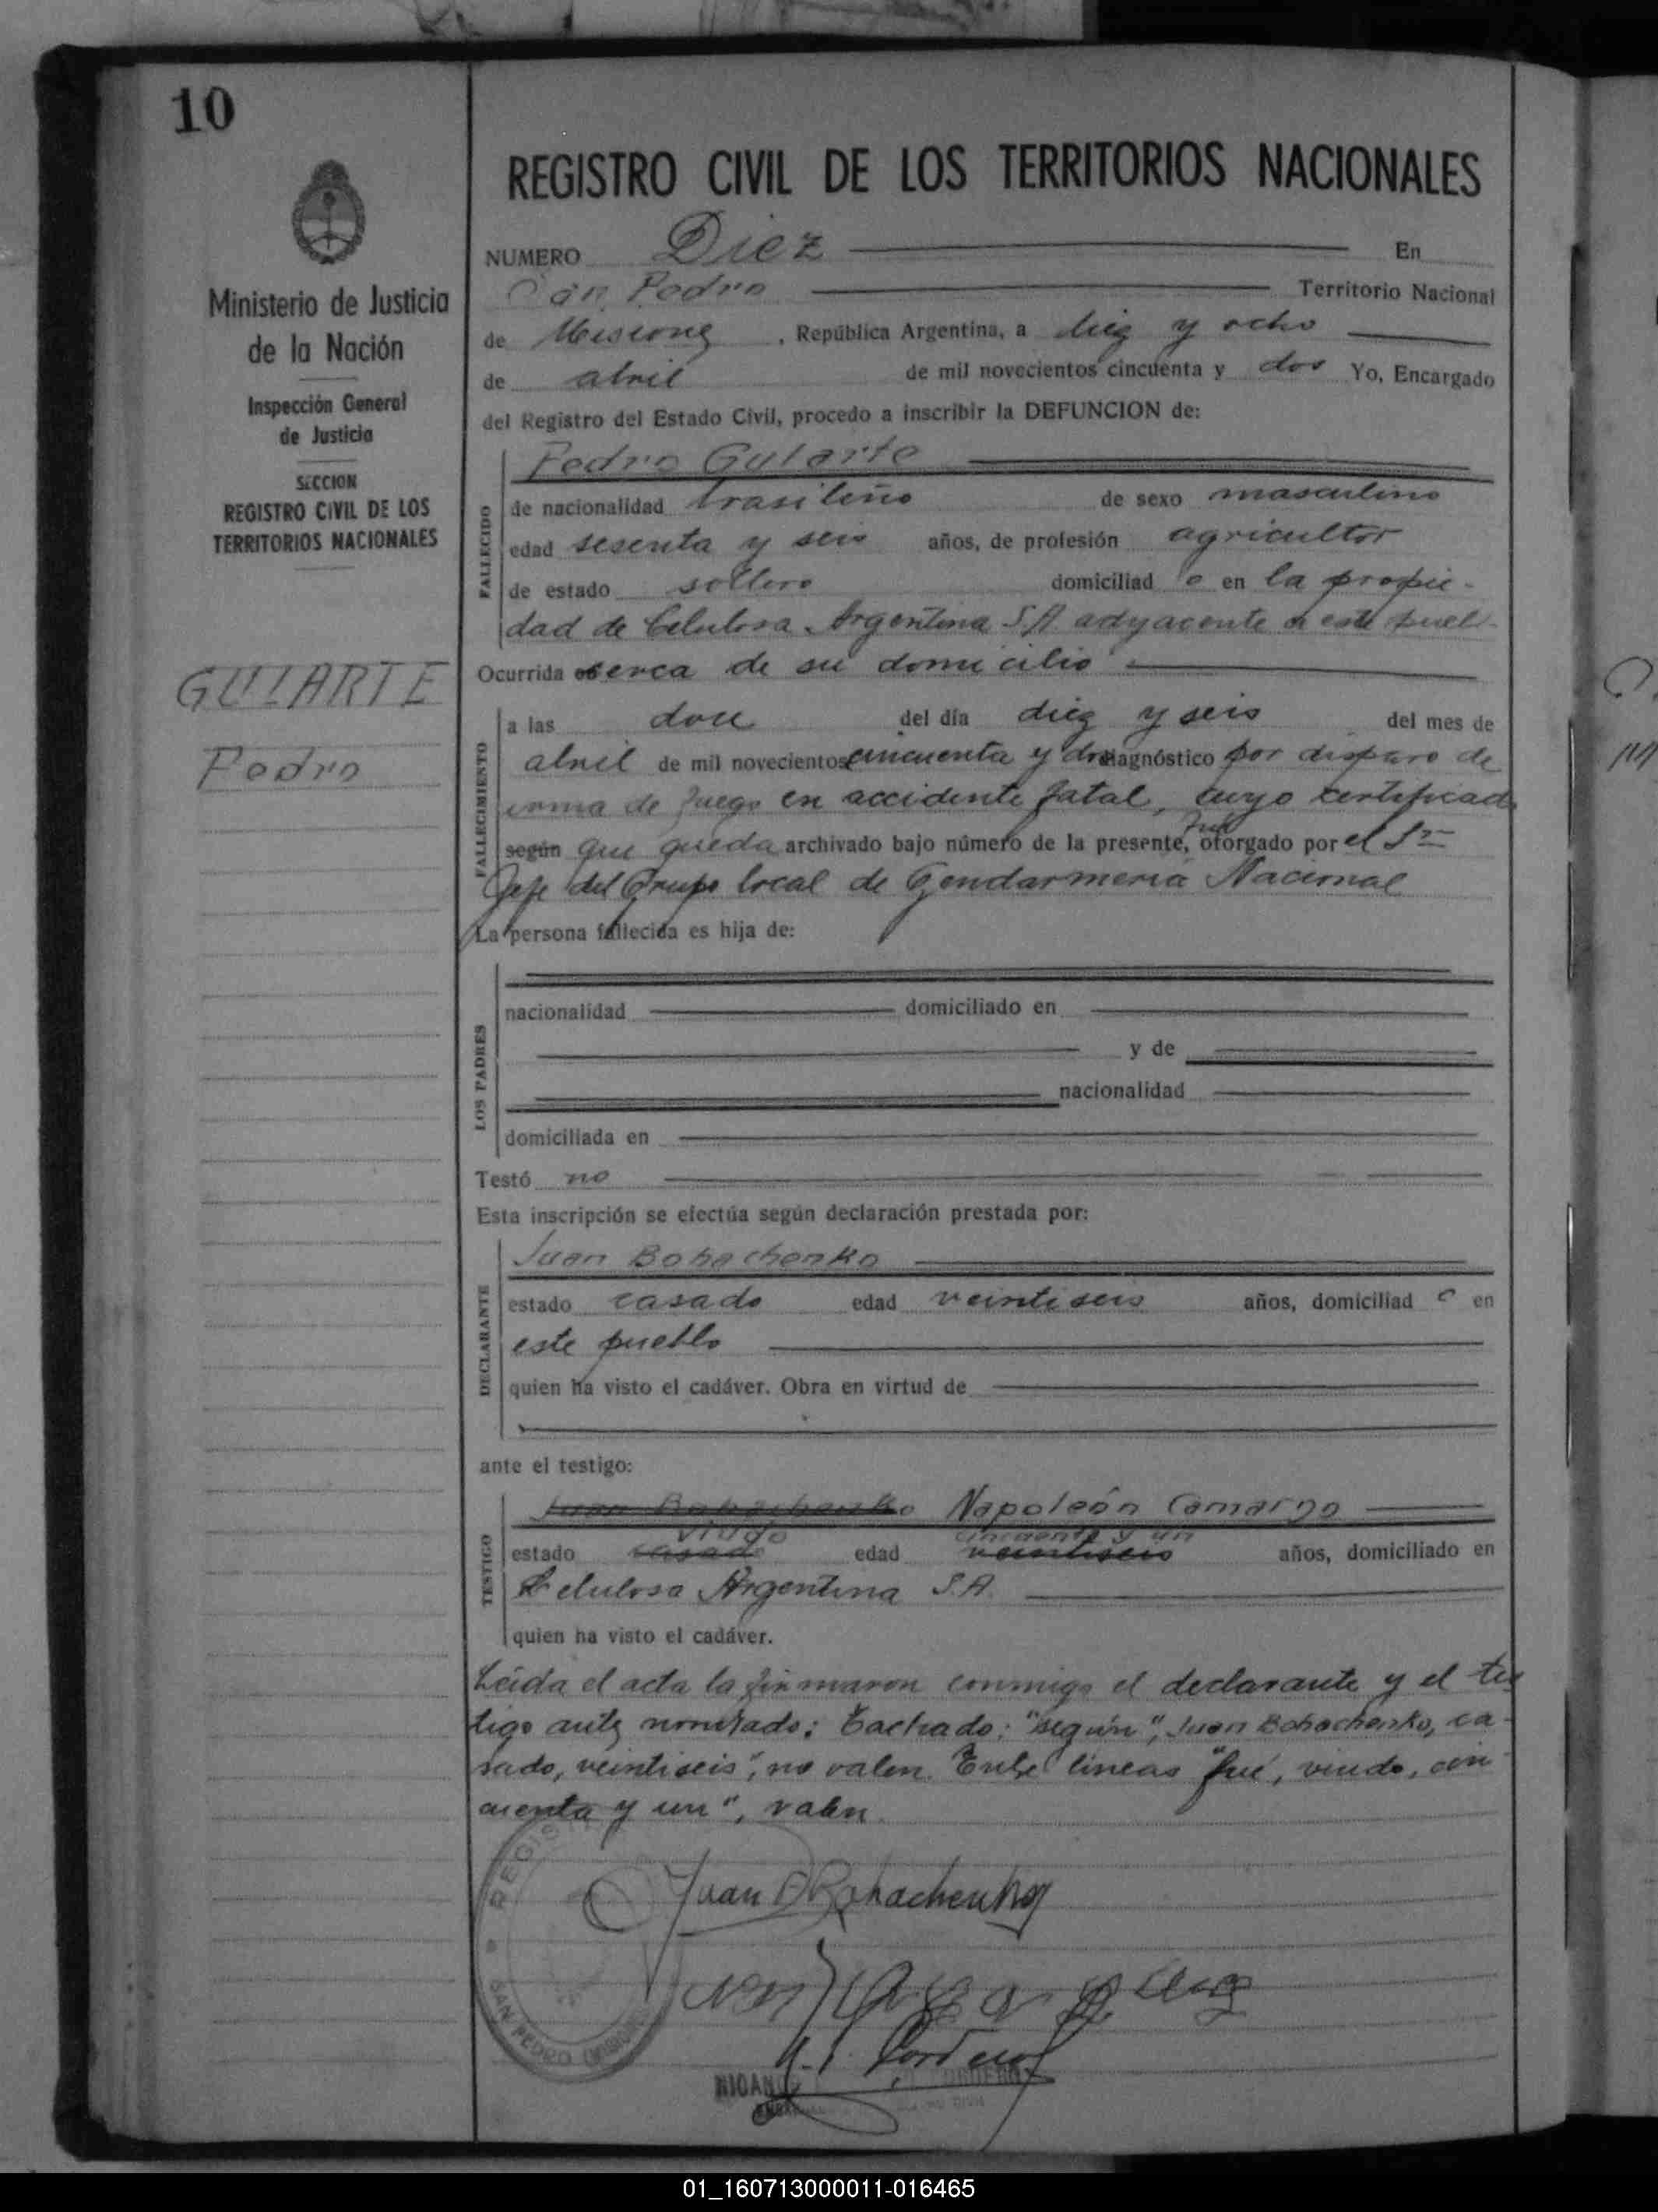 10
REGISTRO CIVIL DE LOS TERRITORIOS NACIONALES
Ministerio de Justicia
de la Nación
Inspección General
de Justicia
SECCION
REGISTRO CIVIL DE LOS
TERRITORIOS NACIONALES
GULARTE
Pedro
NUMERO Diez En
San Pedro Territorio Nacional
de Misiones, República Argentina, a diez y ocho
de abril de mil novecientos cincuenta y dos Yo, Encargado
del Registro del Estado Civil, procedo a inscribir la DEFUNCION de:
FALLECIDO
Pedro Gularte
de nacionalidad brasileño de sexo masculino
edad sesenta y seis años, de profesión agricultor
de estado soltero domiciliad o en la propie-
dad de Celulosa Argentina S.A. adyacente a este puebl-
Ocurrida cerca de su domicilio
FALLECIMIENTO
a las doce del día diez y seis del mes de
abril de mil novecientos cincuenta y dos diagnóstico por disparo de
arma de fuego en accidente fatal, cuyo certificado
fué
según que queda archivado bajo número de la presente, otorgado por el Sr
Jefe del Grupo local de Gendarmería Nacional
La persona fallecida es hija de:
LOS PADRES
nacionalidad domiciliado en
y de
nacionalidad
domiciliada en
Testó no
Esta inscripción se efectúa según declaración prestada por:
DECLARANTE
Juan Bohachenko
estado casado edad veintiseis años, domiciliad o en
este pueblo
quien ha visto el cadáver. Obra en virtud de
ante el testigo:
TESTIGO
Juan Bohachenko Napoleón Camargo
viudo cincuenta y un
estado casado edad veintiseis años, domiciliado en
Celulosa Argentina S.A.
quien ha visto el cadáver.
Leída el acta la firmaron conmigo el declarante y el tes
tigo antes nombrado: Tachado: "según", Juan Bohachenko, ca-
sado, veintiseis", no valen. Entre líneas "fué, viudo, cin
cuenta y un", valen.
Juan Bohachenko
SAN PEDRO
01_160713000011-016465